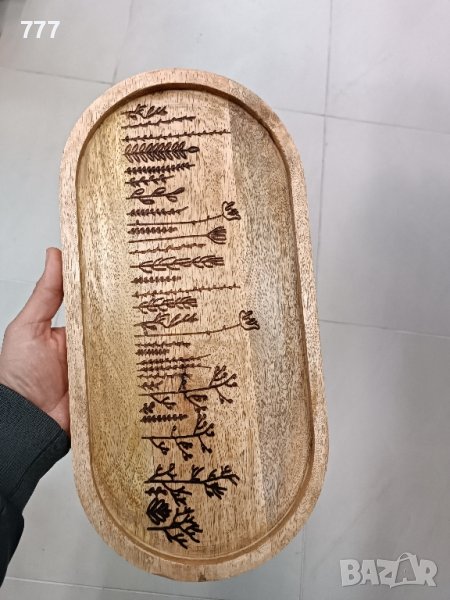 777
BAZAR